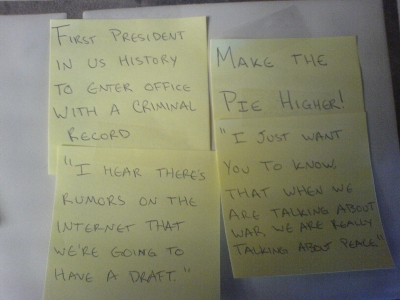 FIRST PRESIDENT
IN US HISTORY
TO ENTER OFFICE
WITH A CRIMINAL
RECORD
"I HEAR THERE'S
RUMORS ON THE
INTERNET THAT
WE'RE GOING TO
HAVE A DRAFT."
MAKE THE
PIE HIGHER!
"I JUST WANT
YOU TO KNOW,
THAT WHEN WE
ARE TALKING ABOUT
WAR, WE ARE REALLY
TALKING ABOUT PEACE."